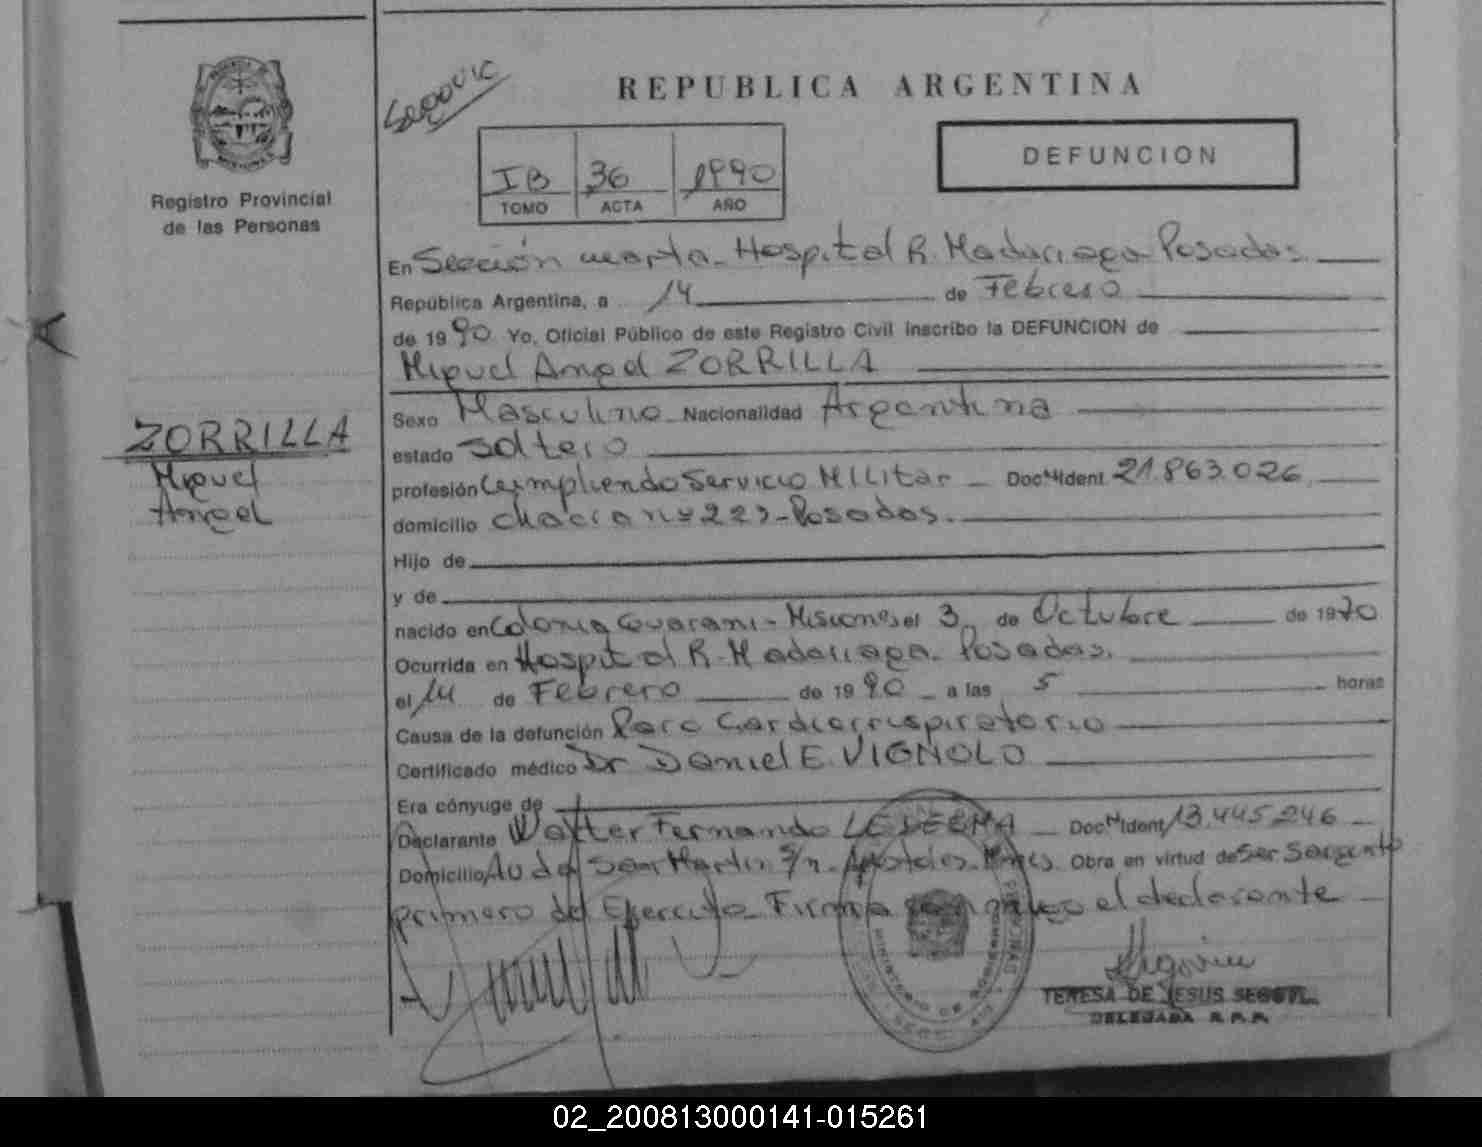 REPUBLICA ARGENTINA
DEFUNCION
IB 36 1990
TOMO ACTA AÑO
Registro Provincial
de las Personas
En Sección cuarta - Hospital R. Madariaga Posadas
República Argentina, a 14 de Febrero
de 1990 Yo, Oficial Público de este Registro Civil inscribo la DEFUNCION de
Miguel Angel ZORRILLA
ZORRILLA
Miguel
Angel
Sexo Masculino Nacionalidad Argentina
estado Soltero
profesión Cumpliendo Servicio Militar - Doc Ident 21.863.026
domicilio chacra nº 227 - Posadas.
Hijo de
y de
nacido en Colonia Guarani - Misiones el 3 de Octubre de 1970
Ocurrida en Hospital R. Madariaga - Posadas.
el 14 de Febrero de 1990 - a las 5 horas
Causa de la defunción Paro Cardiorrespiratorio
Certificado médico Dr Daniel E. VIGNOLO
Era cónyuge de
Declarante Walter Fernando LEDESMA - Doc Ident 13.445.246 -
Domicilio Avda San Martin s/n - Apostoles - Mnes. Obra en virtud de Ser Sargento
primero del Ejercito - Firma conmigo el declarante -
MINISTERIO DE GOBIERNO
TERESA DE JESUS
DELEGADA R.P.P.
02_200813000141-015261